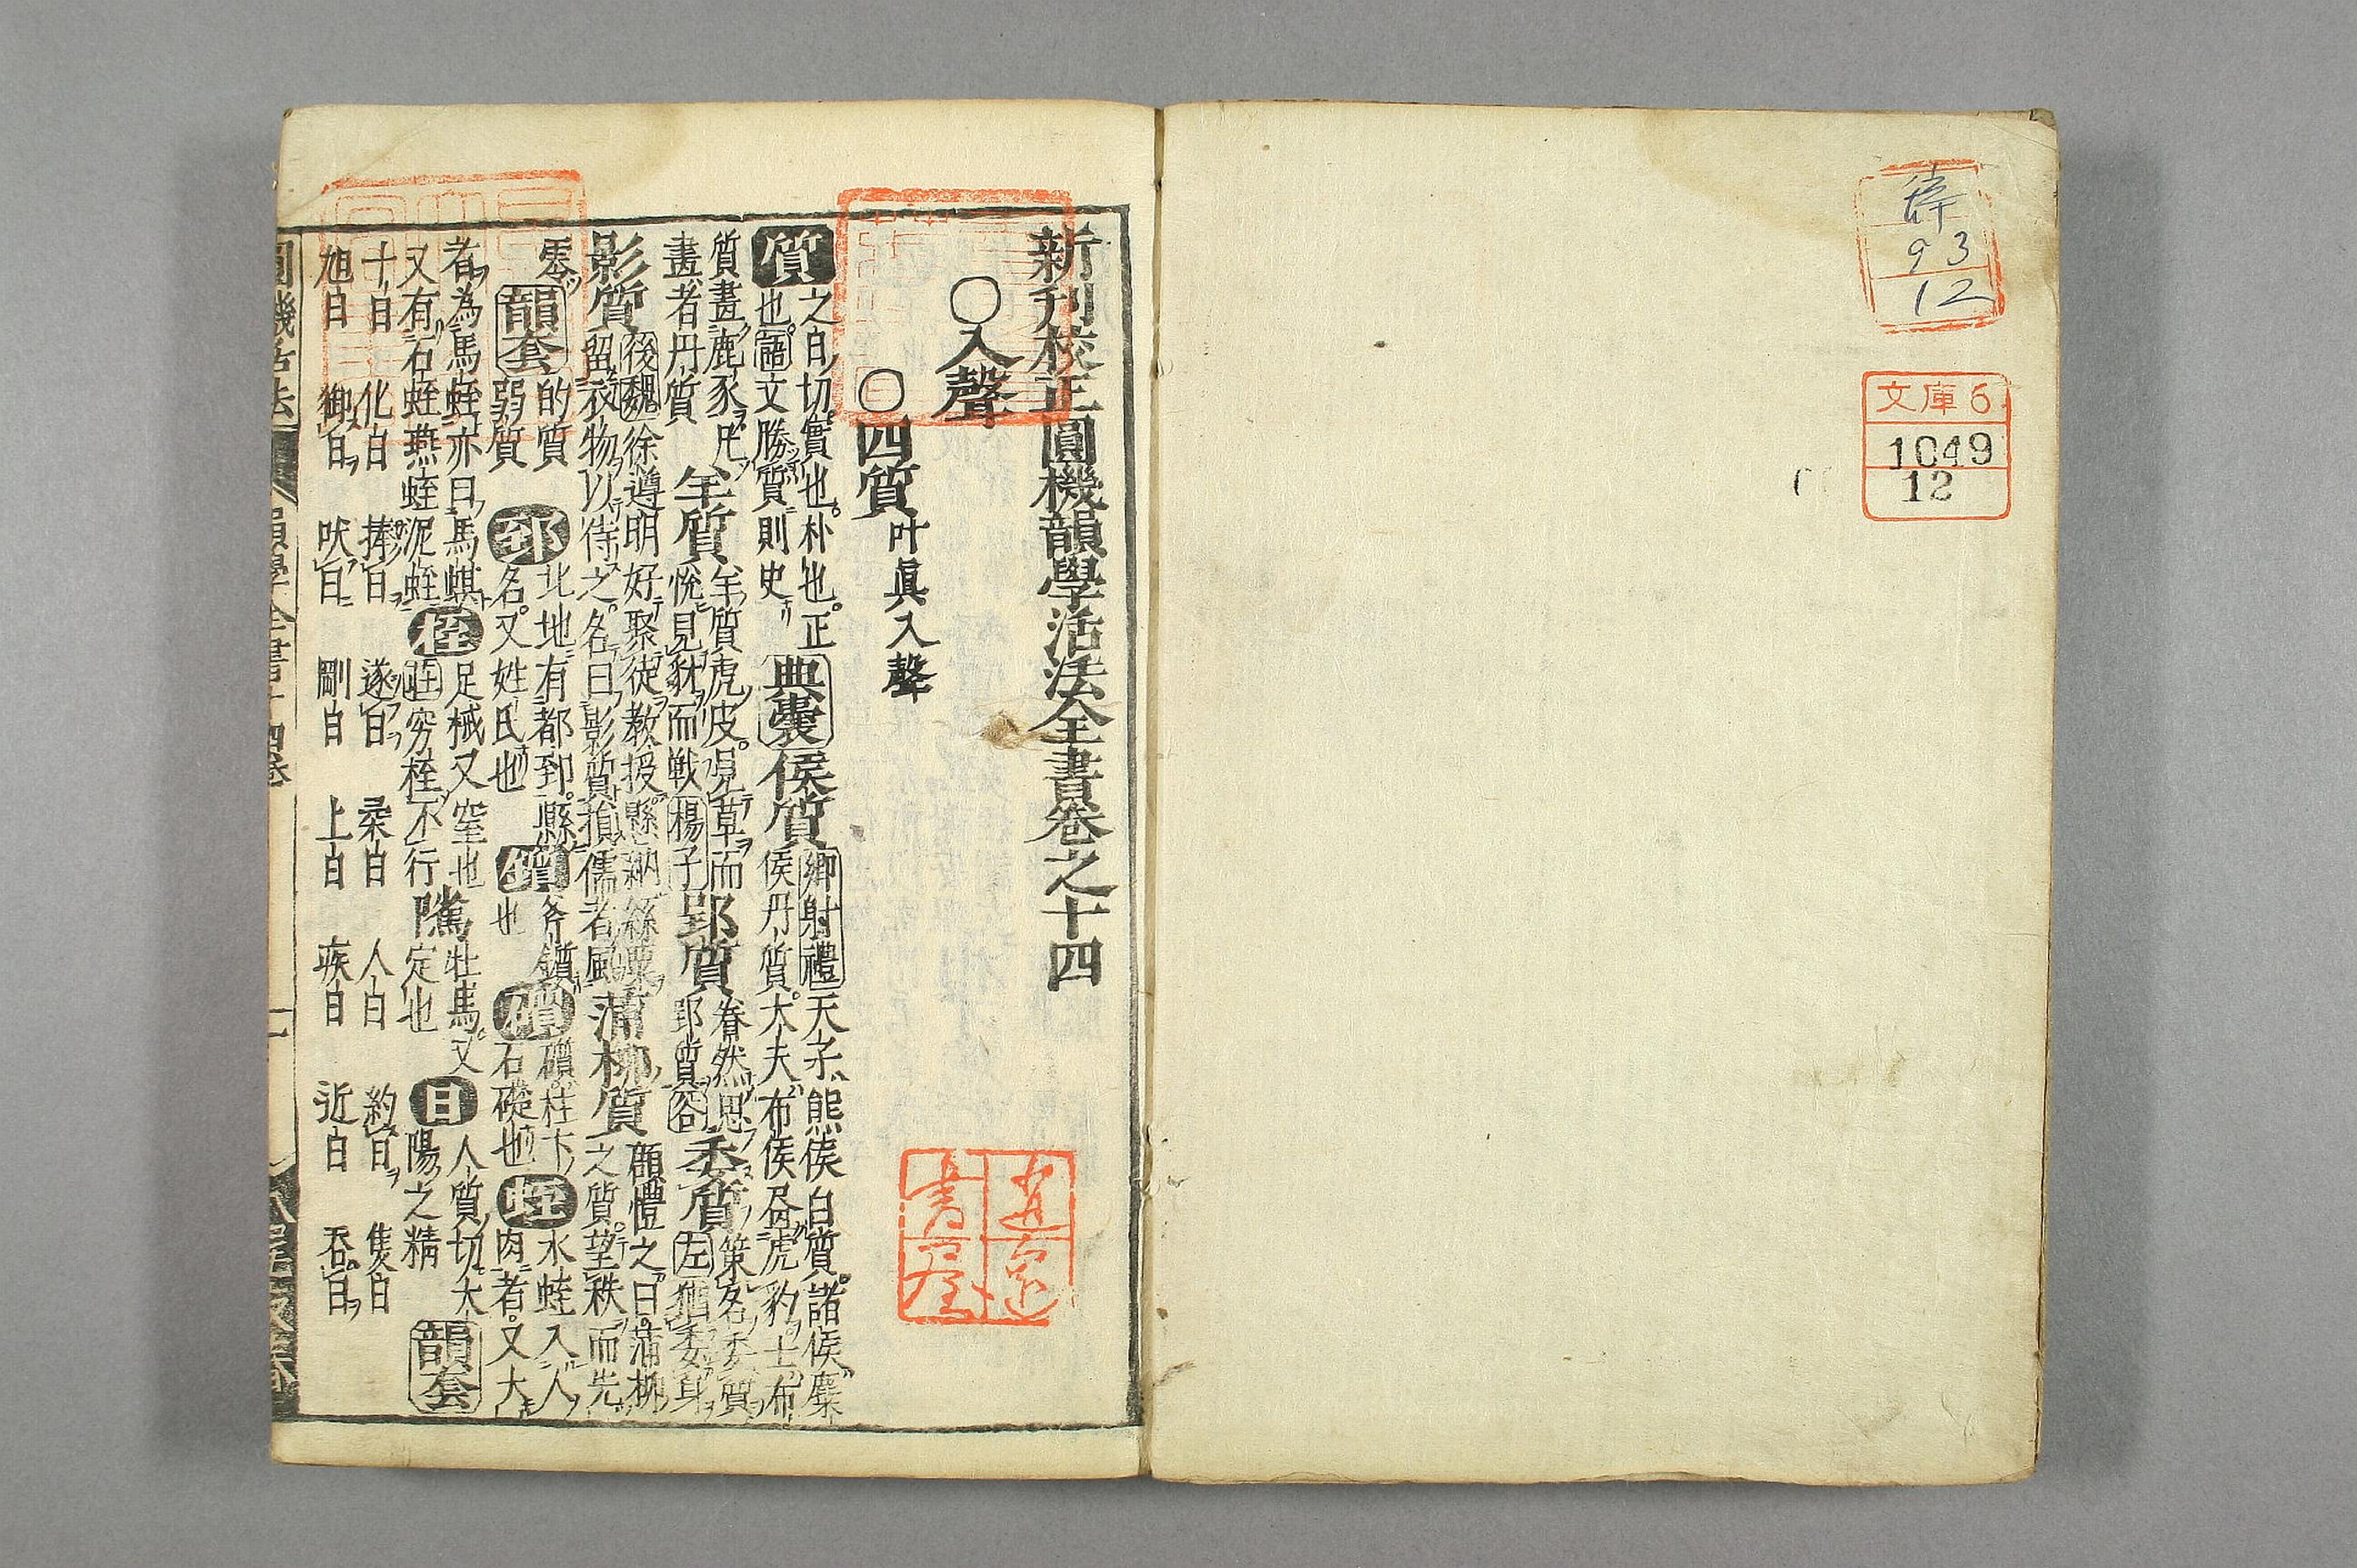 93
12
文庫6
1049
12
新刊校正圓機韻學活法全書卷之十四
○入聲
○四質 叶眞入聲
質 之日切實也。朴也。正
也。語文勝質則史
典囊 侯質 鄉射禮天子熊侯白質。諸侯麋
侯丹質。大夫布侯畫虎豹士布
質畫鹿豕凡
畫者丹質
羊質 羊質虎皮。見草而
悅見豺而戰楊子
郢質 眷然思
郢質
委質 策名委質
左 委身
影質 後魏徐遵明好聚徒教授懸納絲粟
留衣物以待之。名曰影質損儒者風
蒲柳質 顧
之曰。蒲柳
之質。望秩而先
零
韻套 的質
弱質
郅 北地有郁郅縣
名。又姓氏也
鑕 斧鑕
也
礩 礩柱下
石礎也
蛭 水蛭入人
肉者。又大
者為馬蛭亦曰馬蜞
又有石蛭燕蛭泥蛭
桎 足械又窒也
穷桎不行
隲 牡馬。又
定也
日 人質切大
陽之精
韻套
十日 化日 捧日 遂日 柔日 人日 約日 隻日
旭日 御日 吠日 剛日 上日 疾日 近日 吞日
圓機活法 韻學全書十四卷 一